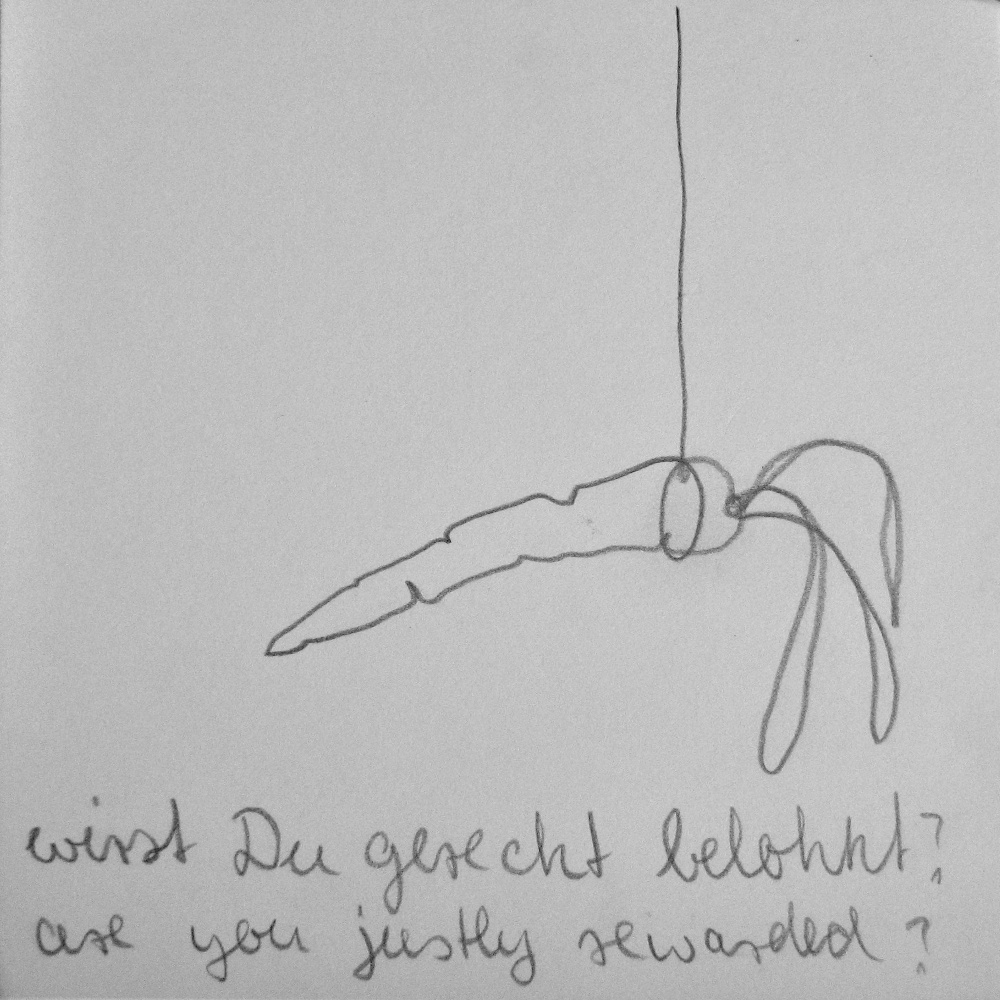 wirst Du gerecht belohnt?
are you justly rewarded?